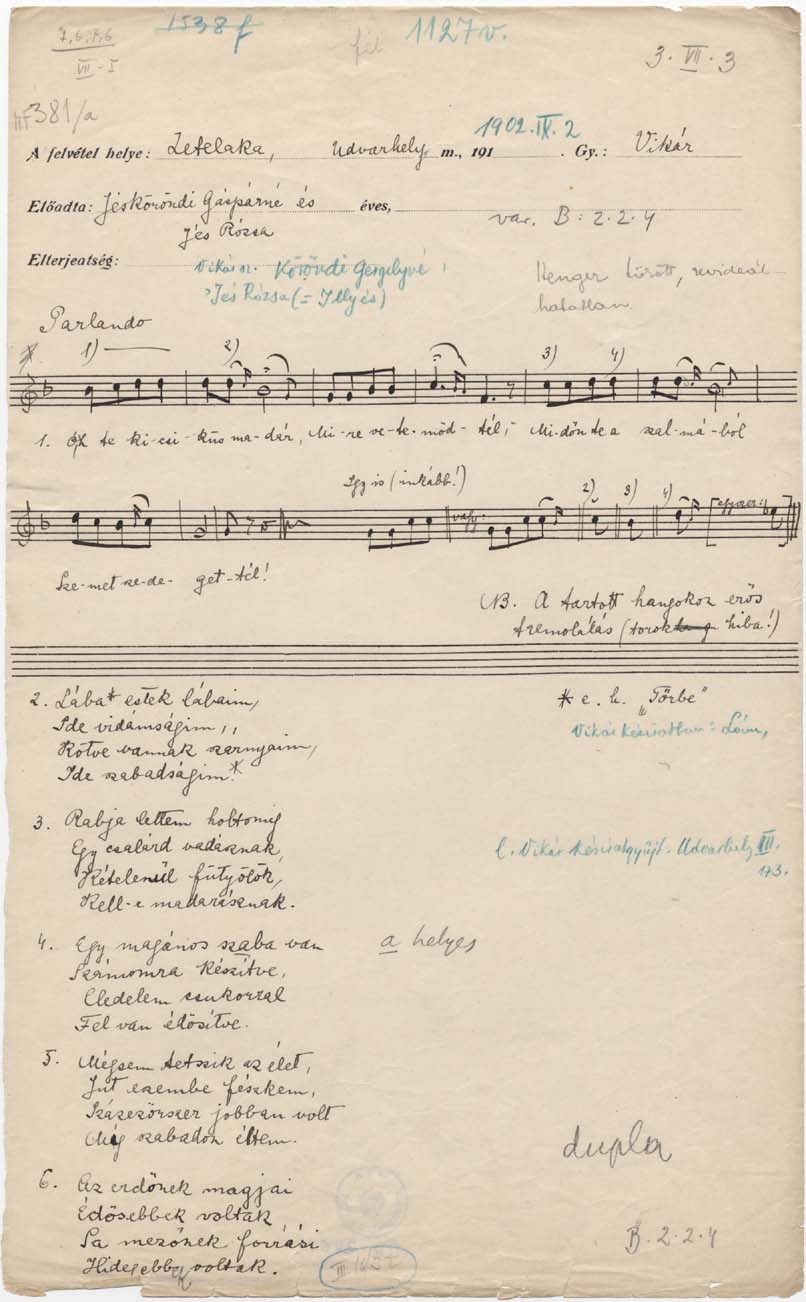 7,6,8,6
VII-5
1538f
fél
1127v.
3.VII.3
MF381/a
A felvétel helye: Zetelaka, Udvarhely m., 191 1902.IX.2. Gy.: Vikár
Előadta: Jésköröndi Gáspárné és éves, var. B: 2.2.4
Jés Rózsa
Elterjedtség: Vikár sz. Köröndi Gergelyné,
Jés Rózsa (= Illyés)
Henger törött, revideál-
hatatlan.
Parlando
* 1) 2) 3) 4)
1. Óh te ki-csi-kus ma-dár, Mi-re ve-te-möd-tél, Mi-dőn te a szal-má-ból
Így is (inkább!)
vagy: 2) 3) 4) egyszer:
Sze-met sze-de-get-tél!
NB. A tartott hangokon erős
tremolálás (torok hiba!)
2. Lába* estek lábaim,
Ide vidámságim,,
Kötve vannak szarnyaim,
Ide szabadságim.*
* e. h. "Tőrbe"
Vikár kéziratban:
3. Rabja lettem holtomig
Egy csalárd vadásznak,
Kételenül fütyölök,
Kell-e madarásznak.
l. Vikár kéziratgyűjt. Udvarhely III.
173.
4. Egy magános szaba van
Számomra készítve,
Eledelem csukorral
Fel van édösítve.
a helyes
5. Mégsem tetszik az élet,
Jut eszembe fészkem,
Százezörszer jobban volt
Míg szabadon éltem.
dupla
6. Az erdőnek magjai
Édösebbek voltak
Sa mezőnek forrási
Hidegebbek voltak.
B. 2.2.4